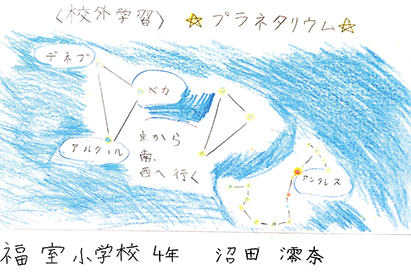 〈校外学習〉 ☆プラネタリウム☆
デネブ
ベガ
アルタイル
東から
南、
西へ行く
アンタレス
福室小学校 4年 沼田 澪奈